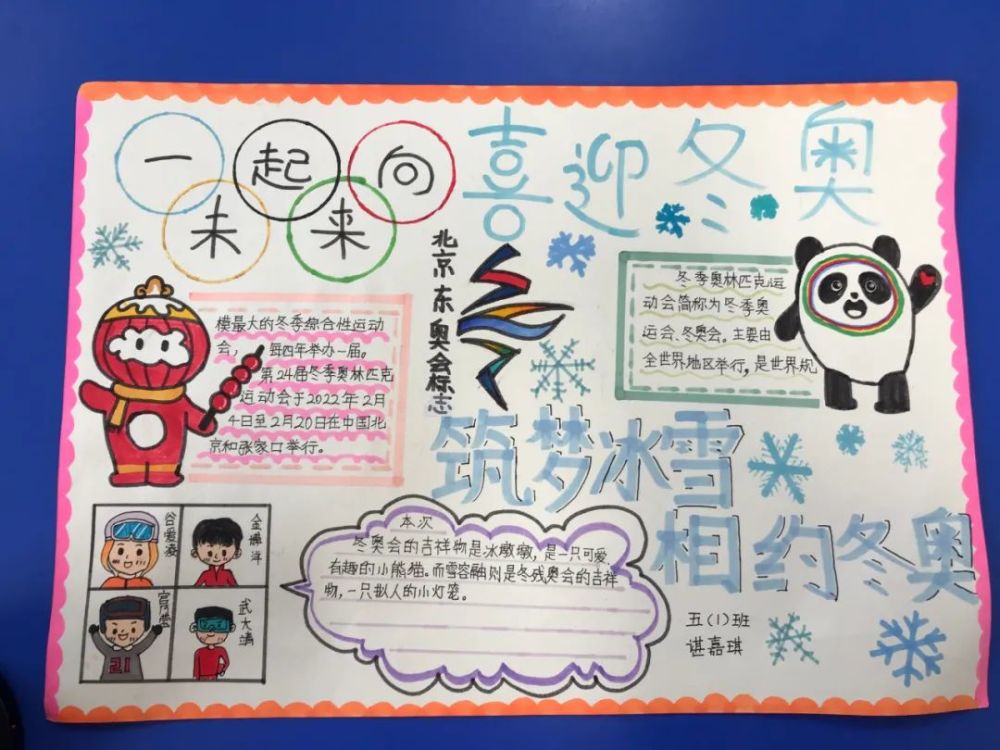 一起向
未来
喜迎冬奥
北京冬奥会标志
冬季奥林匹克运
动会简称为冬季奥
运会、冬奥会。主要由
全世界地区举行，是世界规
模最大的冬季综合性运动
会，每四年举办一届。
第24届冬季奥林匹克
运动会于2022年2月
4日至2月20日在中国北
京和张家口举行。
筑梦冰雪
相约冬奥
谷爱凌
金博洋
21
武大靖
本次
冬奥会的吉祥物是冰墩墩，是一只可爱
有趣的小熊猫。而雪容融则是冬残奥会的吉祥
物，一只拟人的小灯笼。
五(1)班
谌嘉琪